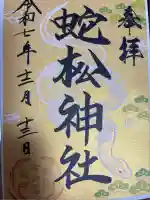 奉拝
蛇松神社
令和七年十二月十三日